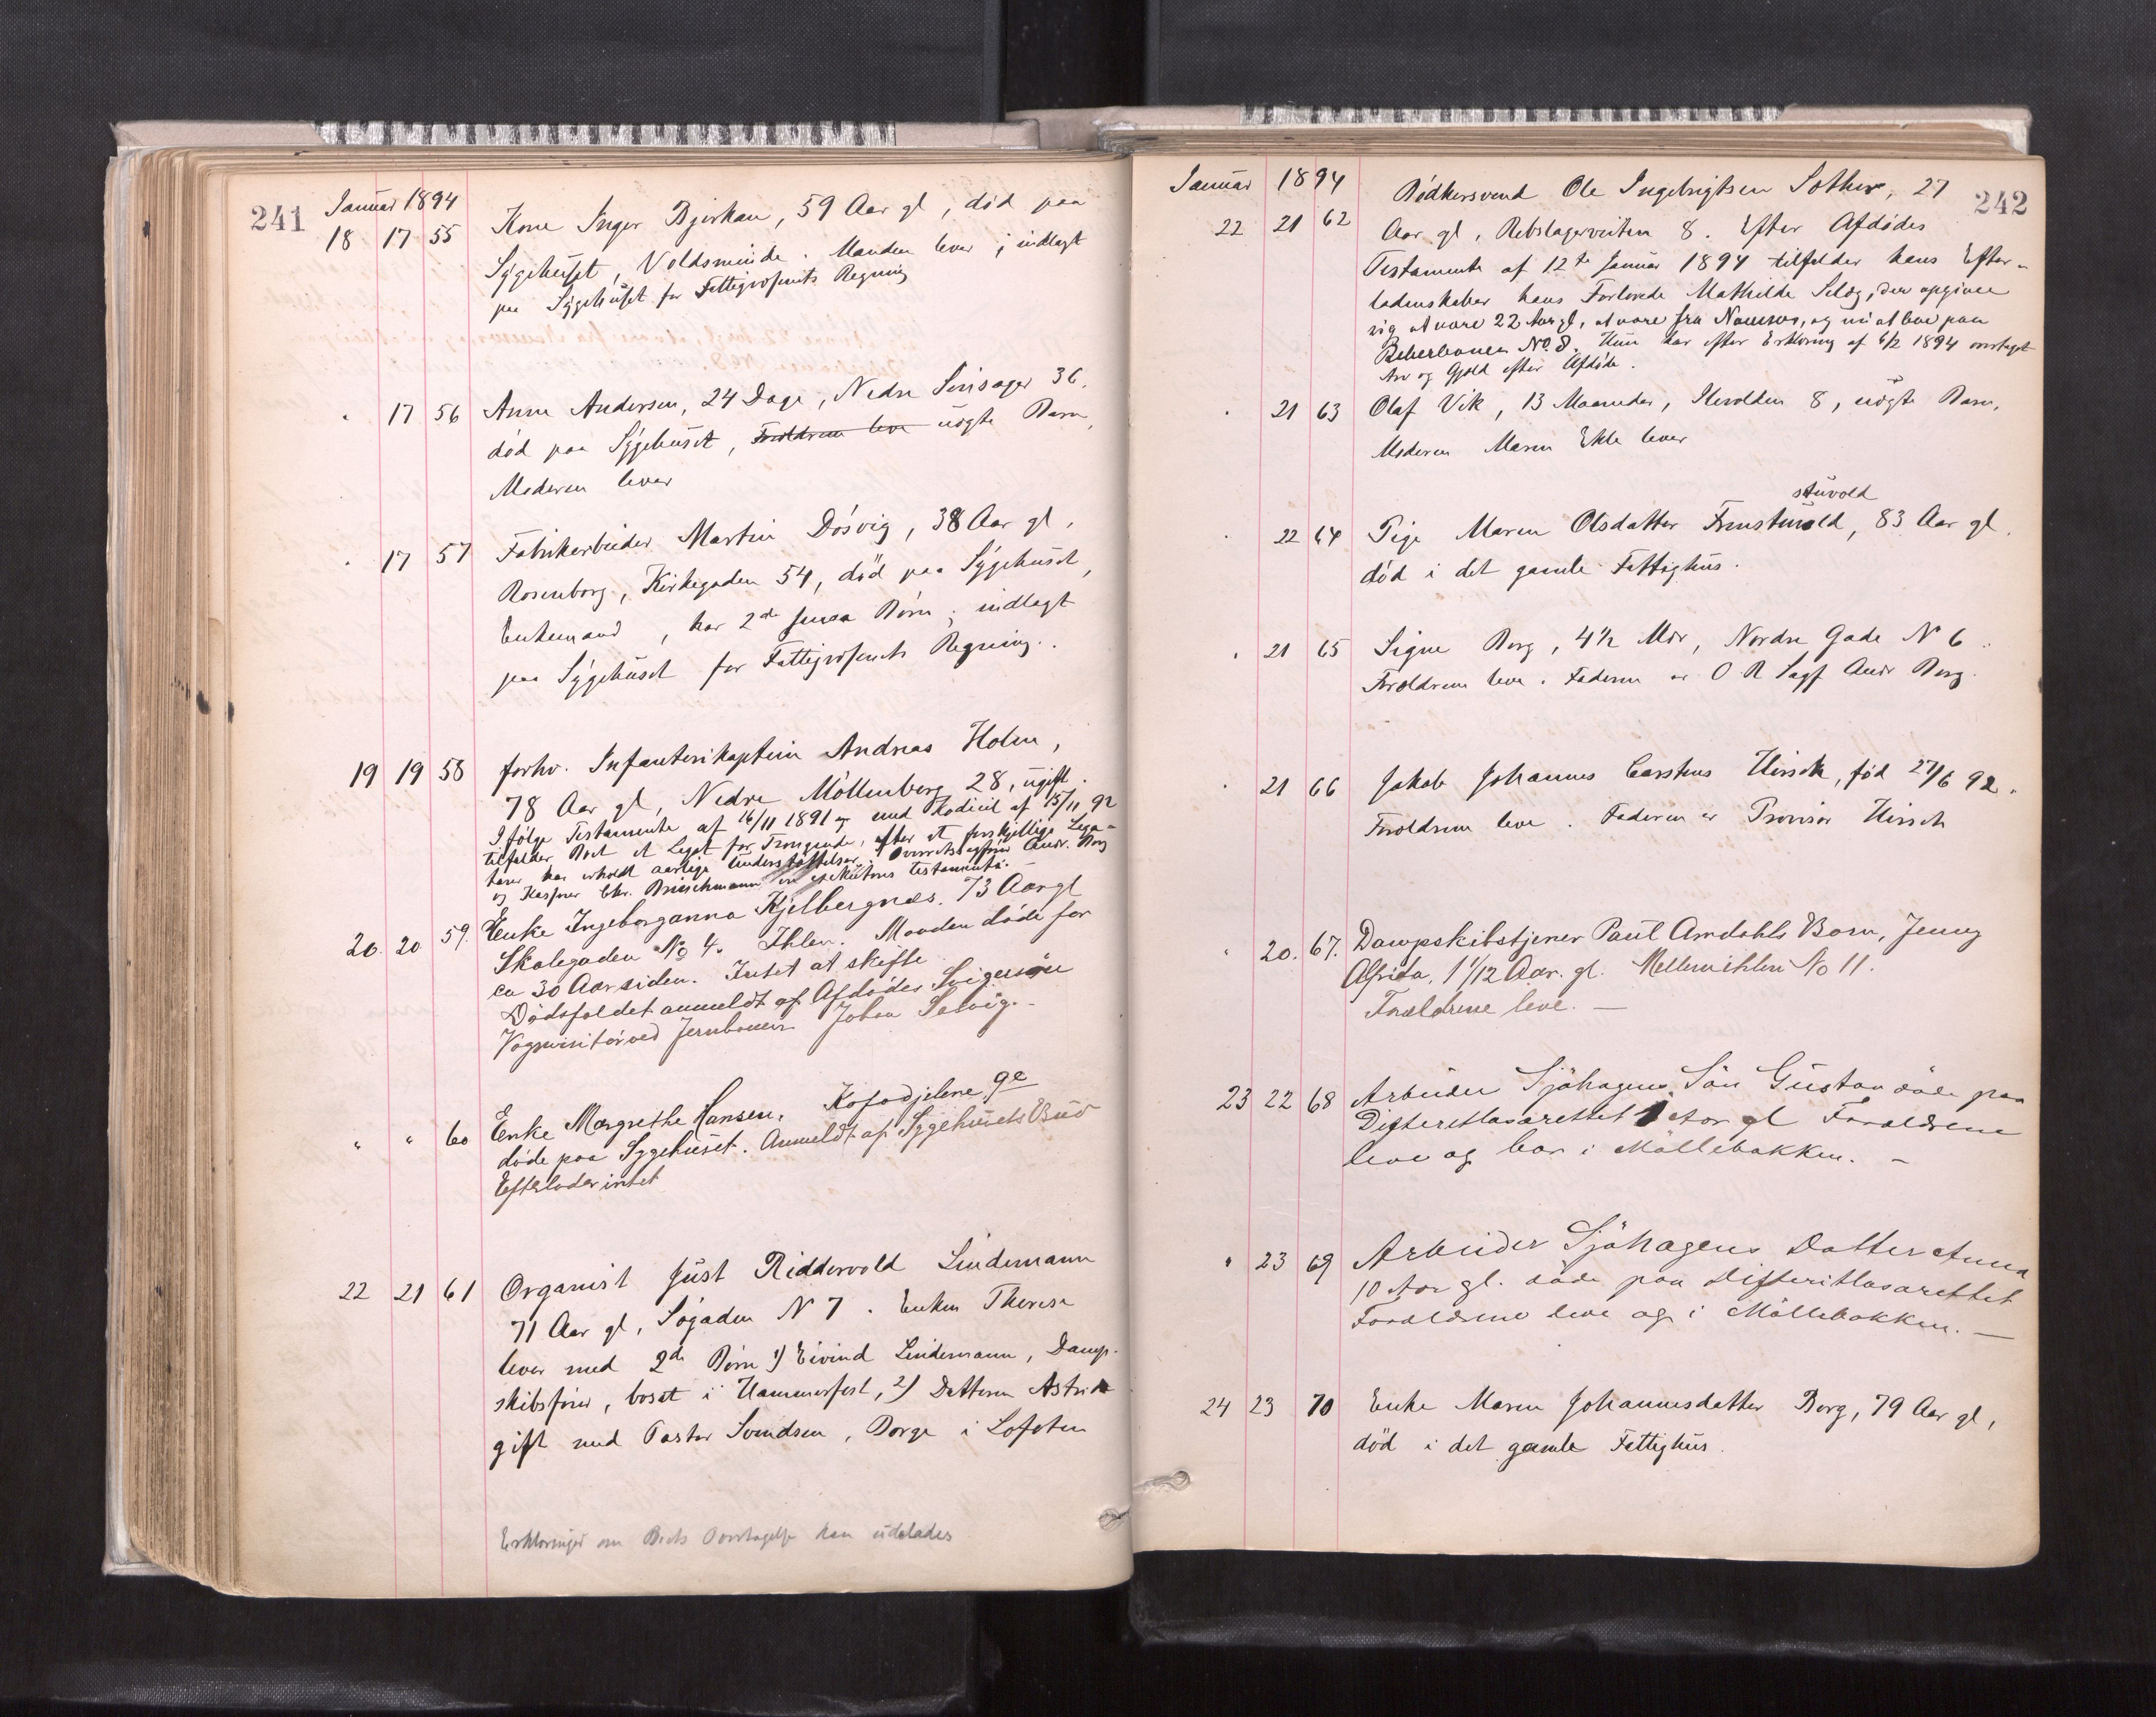 241
Januar 1894
18 17 55 Kone Inger Bjerkan, 59 Aar gl, död paa
Sygehuset, Voldsminde. Manden lever; indlagt
paa Sygehuset for Fattigvæsenets Regning
" 17 56 Anne Andersen, 24 Dage, Nedre Ilevisager 36.
död paa Sygehuset, Forældrene leve uægte Barn,
Moderen lever
" 17 57 Fabrikarbeider Martin Dösvig, 38 Aar gl,
Rosenborg, Kirkegaden 54, död paa Sygehuset,
Enkemand, har 2de smaa Börn; indlagt
paa Sygehuset for Fattigvæsenets Regning.
19 19 58 forhv. Infanterikaptein Andreas Holm,
78 Aar gl, Nedre Möllenberg 28, ugift.
Ifölge Testamente af 16/11 1891 og med Kodicil af 15/11 92
tilfalder Boet et Legat for Trængende, efter at forskjellige Lega-
tarer har erholdt aarlige Understöttelser. Overretssagförer Andr. Berg
og Kasserer Chr. Brinchmann er exekutores testamenti.
20. 20 59. Enke Ingeborganna Kjelbergnæs. 73 Aar gl
Skolegaden No 4. Ihlen. Manden döde for
ca 30 Aar siden. Intet at skifte
Dödsfaldet anmeldt af Afdödes Svigersön
Vognvisitör ved Jernbanen Johan Solvig.
" " 60 Enke Margrethe Hansen. Kofodjelene 9e
döde paa Sygehuset. Anmeldt af Sygehusets Bud
Efterlader intet
22 21 61 Organist Just Riddervold Lindemann
71 Aar gl, Sögaden N 7. Enken Therese
lever med 2de Börn 1) Eivind Lindemann, Damp-
skibsförer, bosat i Hammerfest, 2) Datteren Astrid
gift med Pastor Svendsen, Borge i Lofoten
Erklæringer om Boets Overtagelse kan udelades
242
Januar 1894
22 21 62 Bödkersvend Ole Ingebrigtsen Sother, 27
Aar gl, Rebslagerveiten 8. Efter Afdödes
Testamente af 12te Januar 1894 tilfalder hans Efter-
ladenskaber hans Forlovede Mathilde Selæg, der opgiver
sig at være 22 Aar gl, at være fra Namsos, og nu at leve paa
Reberbanen No 8. Hun har efter Erklæring af 6/2 1894 overtaget
Arv og Gjæld efter Afdöde.
" 21 63 Olaf Vik, 13 Maaneder, Ilevolden 8, uægte Barn,
Moderen Maren Ekle lever
stuvold
" 22 64 Pige Maren Olsdatter Fenstuvold, 83 Aar gl.
död i det gamle Fattighus.
" 21 65 Signe Berg, 4 1/2 Mdr, Nordre Gade N 6.
Forældrene leve. Faderen er O R Sagf. Andr Berg.
" 21 66 Jakob Johannes Carstens Hirsch, föd 27/6 92.
Forældrene leve. Faderen er Provisor Hirsch
" 20. 67. Dampskibstjener Paul Amdahls Barn, Jenny
Alfrida, 1 1/12 Aar. gl. Mellemihlen No 11.
Forældrene leve.
23 22 68 Arbeider Sjöhagens Sön Gustav döde paa
Difteritlasarettet 1 Aar gl Forældrene
leve og bor i Möllebakken.
" 23 69 Arbeider Sjöhagens Datter Anna
10 Aar gl. döde paa Difteritlasarettet
Forældrene leve og i Möllebakken.
24 23 70 Enke Maren Johannesdatter Berg, 79 Aar gl,
död i det gamle Fattighus.